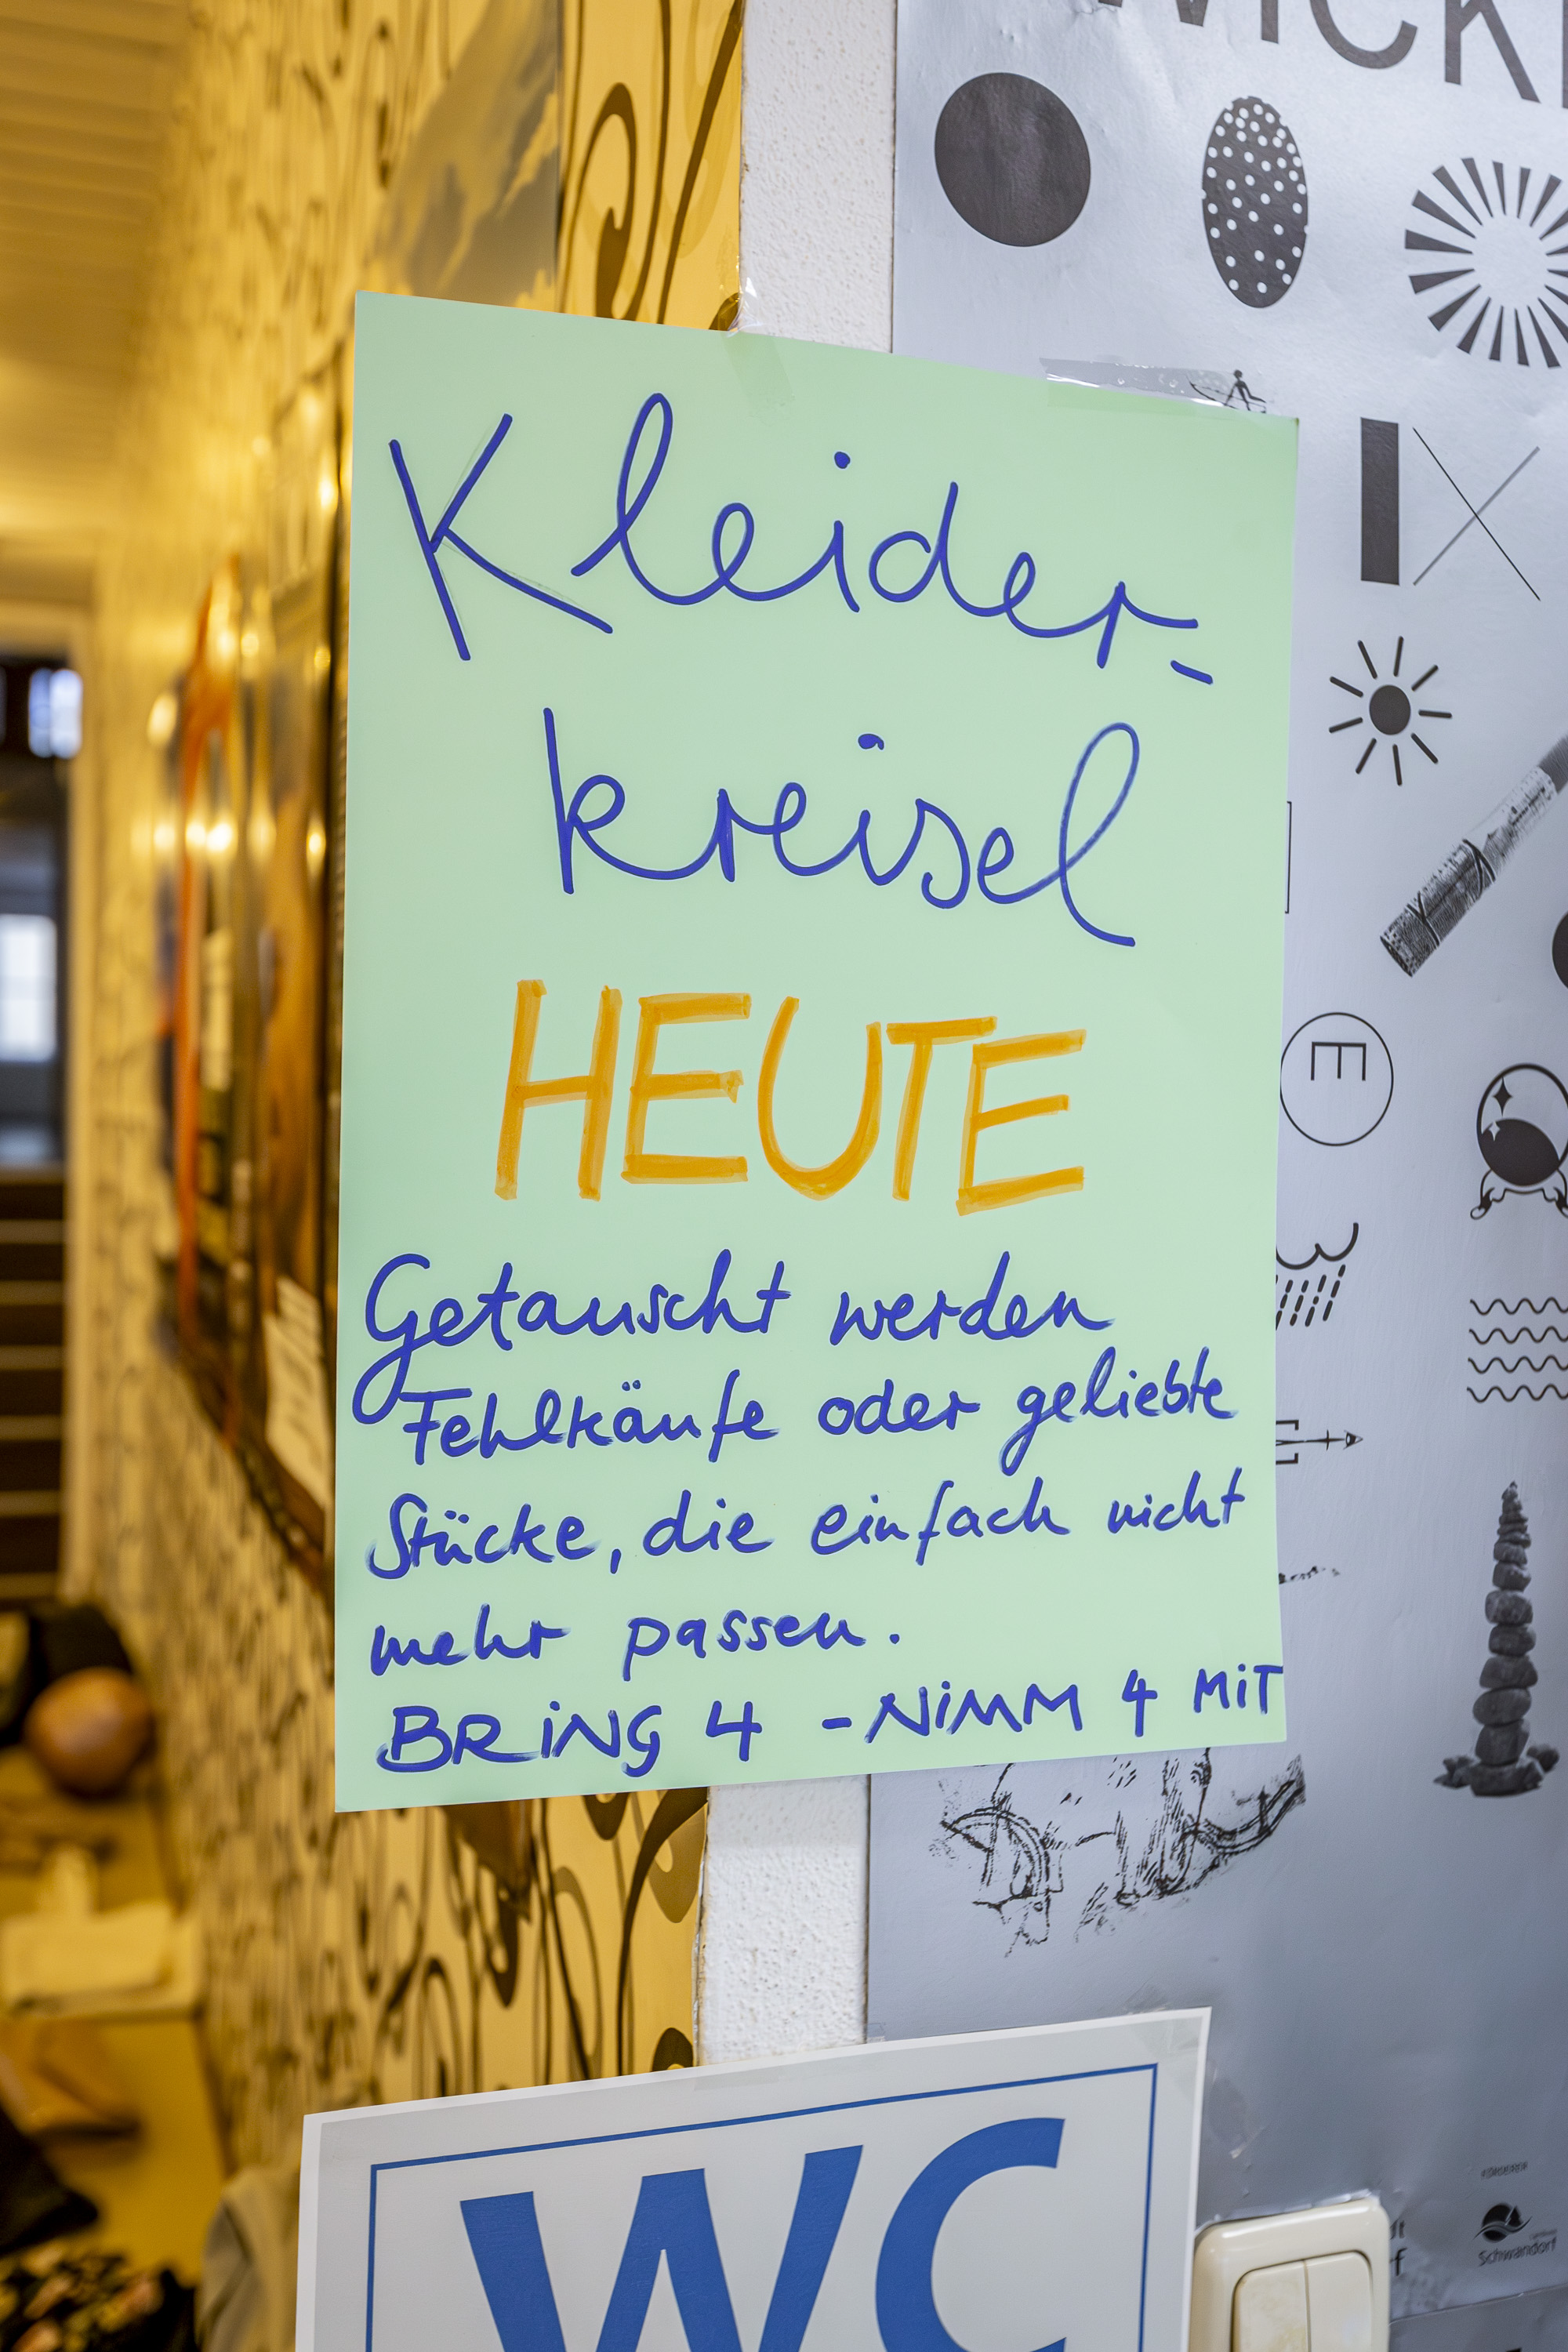 WICK
Kleider-
kreisel
HEUTE
Getauscht werden
Fehlkäufe oder geliebte
Stücke, die einfach nicht
mehr passen.
BRiNG 4 - NiMM 4 MiT
E
WC
Schwandorf